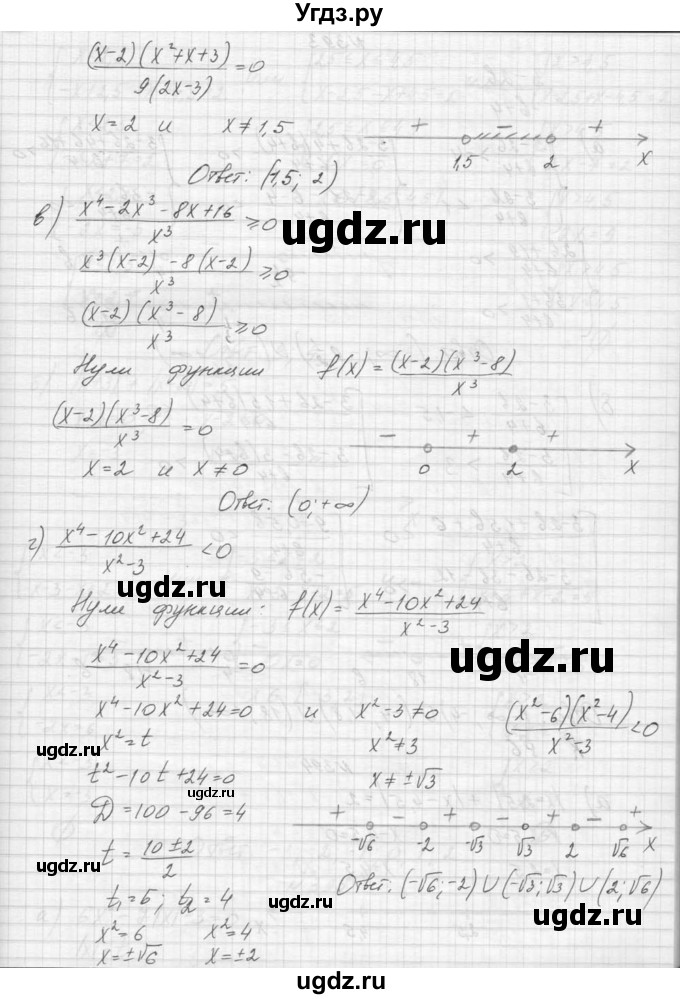 Угдз.ру
(x-2)(x²+x+3)/9(2x-3) = 0
x=2 и x≠1,5
+ - +
1,5 2 x
Ответ: (1,5; 2)
в) x⁴-2x³-8x+16/x³ ⩾0
x³(x-2)-8(x-2)/x³ ⩾0
(x-2)(x³-8)/x³ ⩾0
ugdz.ru
Нули функции f(x)=(x-2)(x³-8)/x³
(x-2)(x³-8)/x³ =0
x=2 и x≠0
- + +
0 2 x
Ответ: (0;+∞)
ugdz.ru
г) x⁴-10x²+24/x²-3 <0
ugdz.ru
Нули функции: f(x)= x⁴-10x²+24/x²-3
ugdz.ru
x⁴-10x²+24/x²-3 =0
x⁴-10x²+24=0 и x²-3≠0 (x²-6)(x²-4)/x²-3 <0
x²=t x²≠3
ugdz.ru
t²-10t+24=0 x≠±√3
ugdz.ru
D=100-96=4
+ - + - + - +
-√6 -2 -√3 √3 2 √6 x
t=10±2/2
ugdz.ru
Ответ: (-√6;-2)∪(-√3;√3)∪(2;√6)
t₁=6; t₂=4
ugdz.ru
ugdz.ru
x²=6 x²=4
x=±√6 x=±2
ugdz.ru